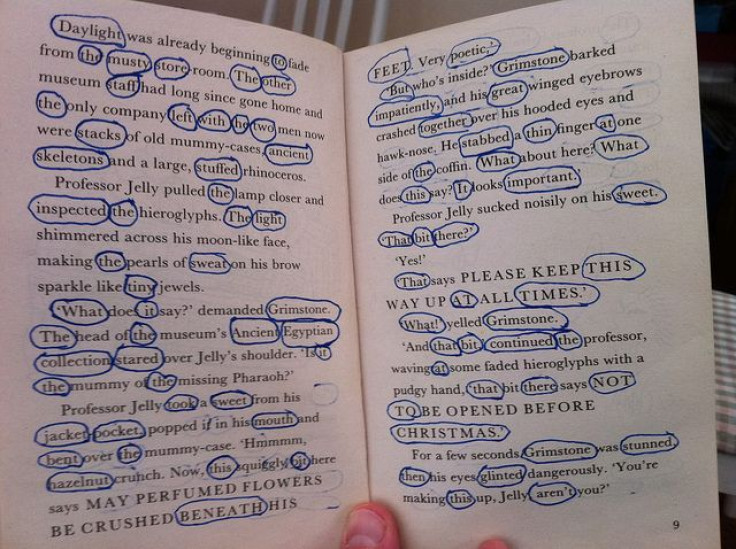 Daylight was already beginning to fade
from the musty store-room. The other
museum staff had long since gone home and
the only company left with the two men now
were stacks of old mummy-cases, ancient
skeletons and a large, stuffed rhinoceros.
Professor Jelly pulled the lamp closer and
inspected the hieroglyphs. The light
shimmered across his moon-like face,
making the pearls of sweat on his brow
sparkle like tiny jewels.
'What does it say?' demanded Grimstone.
The head of the museum's Ancient Egyptian
collection stared over Jelly's shoulder. 'Is it
the mummy of the missing Pharaoh?'
Professor Jelly took a sweet from his
jacket pocket, popped it in his mouth and
bent over the mummy-case. 'Hmmmm,
hazelnut crunch. Now, this squiggly bit here
says MAY PERFUMED FLOWERS
BE CRUSHED BENEATH HIS
FEET. Very poetic.'
'But who's inside?' Grimstone barked
impatiently, and his great winged eyebrows
crashed together over his hooded eyes and
hawk-nose. He stabbed a thin finger at one
side of the coffin. 'What about here? What
does this say? It looks important.'
Professor Jelly sucked noisily on his sweet.
'That bit there?'
'Yes!'
'That says PLEASE KEEP THIS
WAY UP AT ALL TIMES.'
'What!' yelled Grimstone.
'And that bit,' continued the professor,
waving at some faded hieroglyphs with a
pudgy hand, 'that bit there says NOT
TO BE OPENED BEFORE
CHRISTMAS.'
For a few seconds Grimstone was stunned,
then his eyes glinted dangerously. 'You're
making this up, Jelly, aren't you?'
9